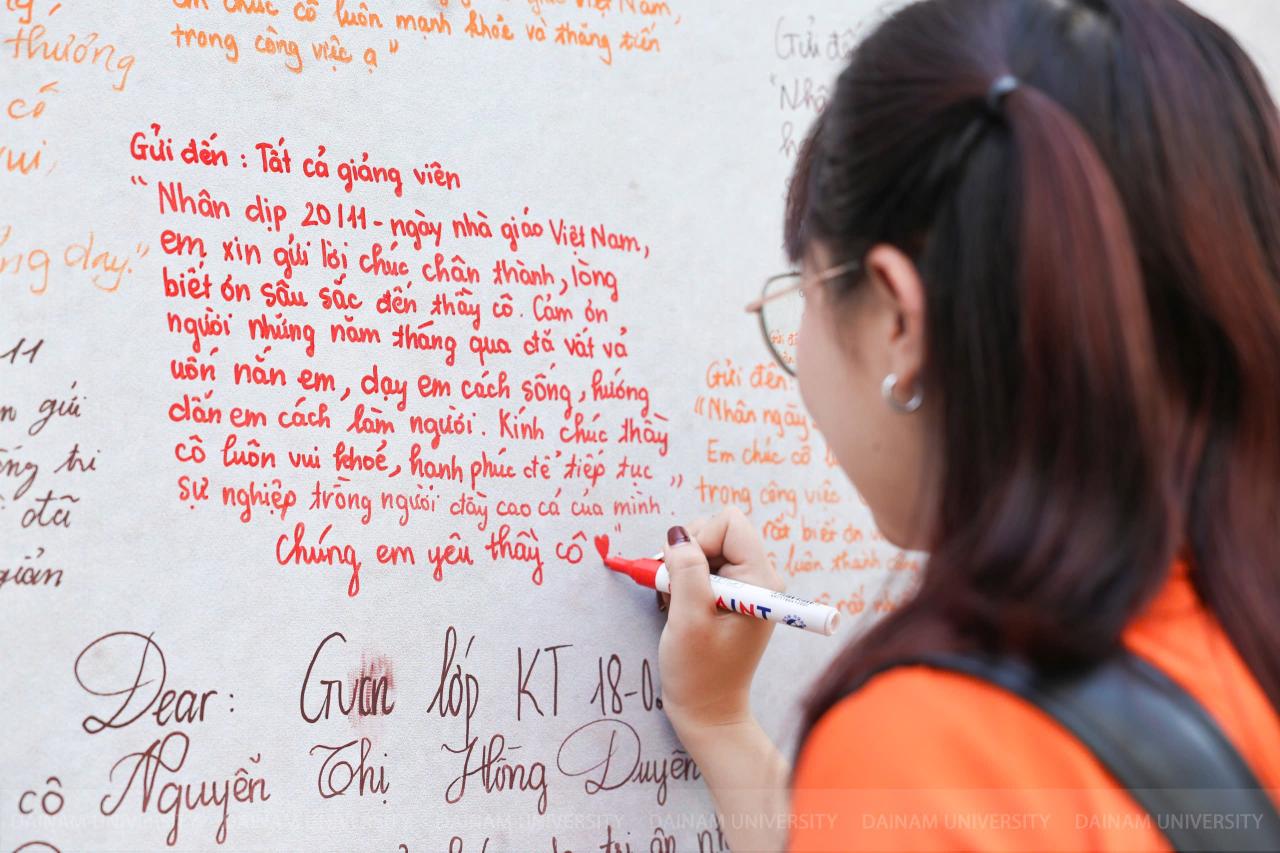 thương
cô
vui,
em chúc cô luôn mạnh khỏe và thăng tiến
trong công việc ạ"
Gửi đến : Tất cả giảng viên
"Nhân dịp 20/11 - ngày nhà giáo Việt Nam,
em xin gửi lời chúc chân thành, lòng
biết ơn sâu sắc đến thầy cô. Cảm ơn
người những năm tháng qua đã vất vả
uốn nắn em, dạy em cách sống, hướng
dẫn em cách làm người. Kính chúc thầy
cô luôn vui khoẻ, hạnh phúc để tiếp tục
sự nghiệp trồng người đầy cao cả của mình."
Chúng em yêu thầy cô
dạy."
11
gửi
tri
đã
giản
Gửi
Gửi đến:
"Nhân ngày
Em chúc cô
trong công việc
rất biết ơn
luôn thành công
PAINT
Dear: lớp KT 18-0
cô Nguyễn Thị Hồng Duyên
tri ân
DAINAM UNIVERSITY DAINAM UNIVERSITY DAINAM UNIVERSITY DAINAM UNIVERSITY DAINAM UNIVERSITY DAINAM UNIVERSITY